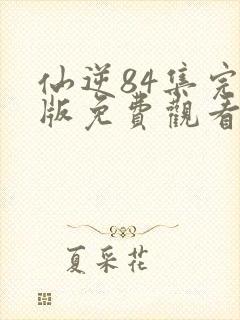 仙逆84集完
版免費觀看
夏采花